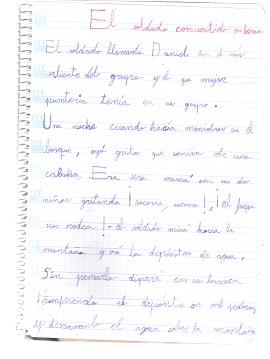 El soldado convertido en heroe
El soldado llamado Daniel era el más
valiente del grupo y el que mejor
puntería tenía en su grupo.
Una noche cuando hacía maniobras en el
bosque, oyó gritos que venían de una
cabaña. Era una mamá con sus dos
niños gritando ¡socorro, socorro!, ¡el fuego
nos rodea! - el soldado miró hacia la
montaña y vió los depósitos de agua.
Sin pensarlo disparó con su bazoca
rompiendo el deposito en mil pedazos
y derramando el agua sobre la montaña